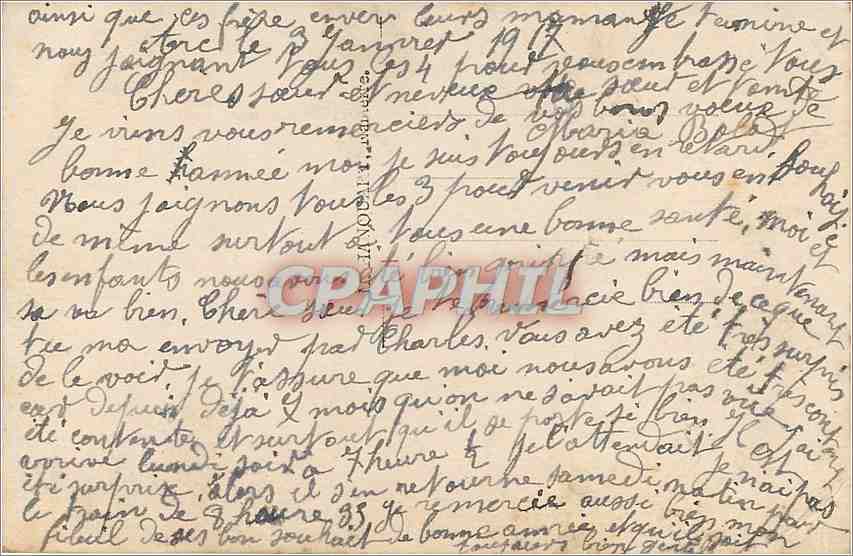 ainsi que ces frère enver leurs maman Je termine et
nous joignant tous les 4 pour vous embrassé tous
le 3 Janvier 1917
Cheres sœur et neveux votre sœur et tante
Maria
Je viens vous remerciers de vos bons voeux de
bonne année moi je suis toujours en etard
Nous joignons tous les 3 pour venir vous en souhaité
de même surtout a tous une bonne santé, moi et
les enfants nous avons été bien grippé mais maintenant
sa va bien. Chere sœur je te remercie bien de ce que
tu ma envoyer par Charles. Vous avez été très surpris
de le voir. Je t'assure que moi nous avons été très contents
car depuis déjà 7 mois qu'on ne savait pas vue. J'ai
été contente et surtout qu'il se porte si bien. Il est
arrivé lundi soir a 7 heure ½ je l'attendait je n'ai pas
été surprix, alors il s'en retourne samedi matin par
le train de 8 heure 33 je remercie aussi bien mon
filieul de ses bon souhait de bonne année et qu'il soit
toujours bien gentil
CPAPHIL